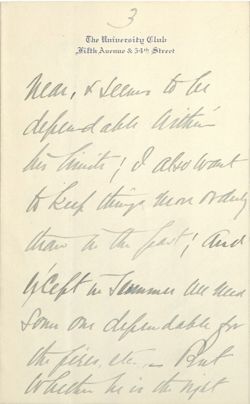 3
The University Club
Fifth Avenue & 54th Street
near, & seems to be
dependable within
his limits; I also want
to keep things more orderly
than in the past; and
except in Summer we need
some one dependable for
the fires, etc. – But
whether he is the right